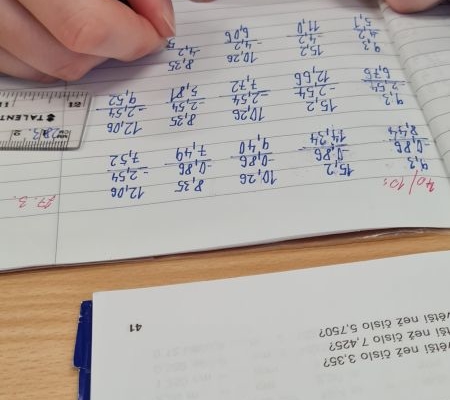 větší než číslo 3,35?
větší než číslo 7,425?
větší než číslo 5,750?
41
40/10:
17. 3.
9,3 15,2 10,26 8,35 12,06
-0,86 -0,86 -0,86 -0,86 -2,54
8,44 14,34 9,40 7,49 7,52
9,3 15,2 10,26 8,35 12,06
-2,54 -2,54 -2,54 -2,54 -2,54
6,76 12,66 7,72 5,81 9,52
9,3 15,2 10,26 8,35
-4,2 -4,2 -4,2 -4,2
5,1 11,0 6,06
TALENT